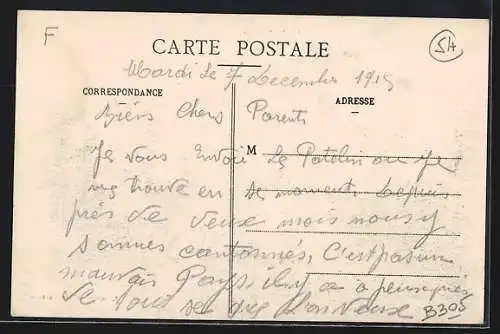 F
54
CARTE POSTALE
Mardi Le 7 Decembre 1915
CORRESPONDANCE
ADRESSE
Chers Parents
M
Je vous Envoie Le Patelin ou Je
me trouve en se moment Depuis
près de deux mois nous y
sommes cantonnés, C'est pas un
mauvais Pays il y a a peu près
de tout se que L'on veux
B305